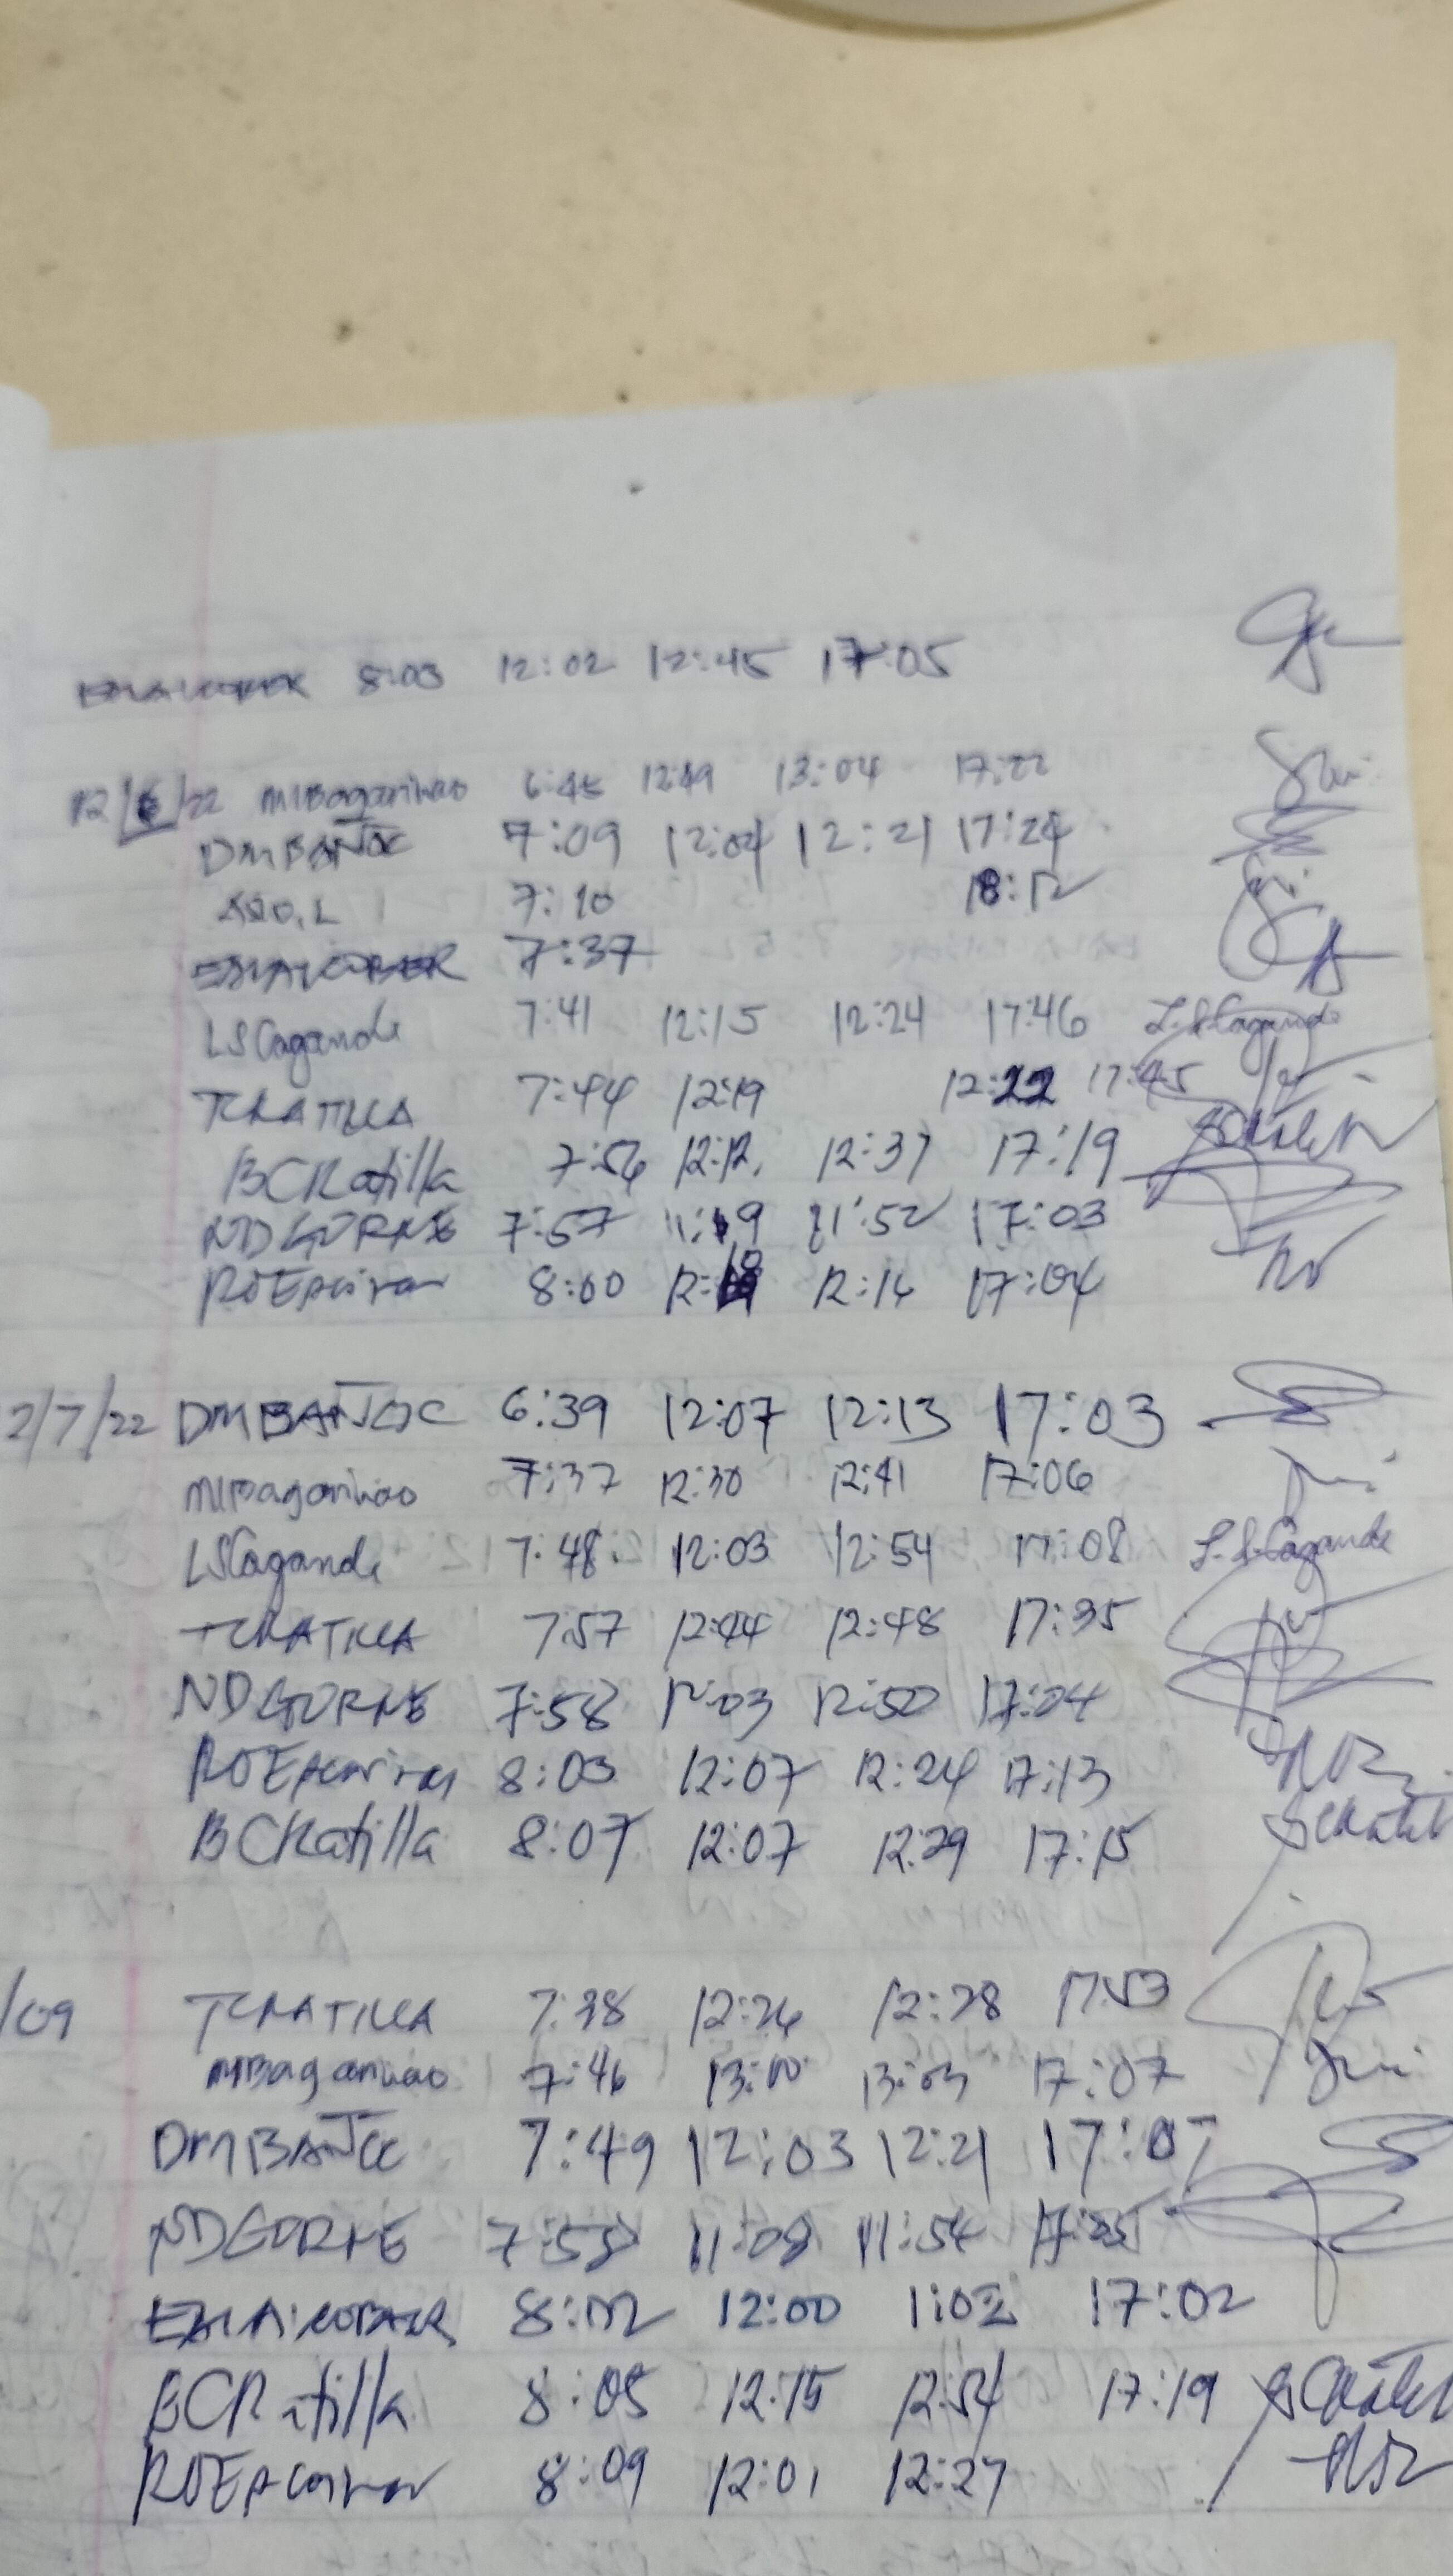 8:03 12:02 12:45 17:05
12/6/22 MIBagarinao 6:45 12:49 13:04 17:22
DMBAÑOC 7:09 12:04 12:21 17:24
7:10 18:12
7:37
LSCagande 7:41 12:15 12:24 17:46 L.S.Cagande
TCRATILLA 7:44 12:19 12:22 17:45
BCRatilla 7:56 12:12 12:37 17:19
NDGORNE 7:57 11:19 11:52 17:03
8:00 12:18 12:14 17:04
2/7/22 DMBAÑOC 6:39 12:07 12:13 17:03
MIBagarinao 7:37 12:30 12:41 17:06
LSCagande 7:48 12:03 12:54 17:08 L.S.Cagande
TCRATILLA 7:57 12:44 12:48 17:35
NDGORNE 7:58 12:03 12:50 17:04
8:03 12:07 12:24 17:13
BCRatilla 8:07 12:07 12:29 17:15
/09 TCRATILLA 7:38 12:26 12:28 17:53
MIBagarinao 7:46 13:00 13:03 17:07
DMBAÑOC 7:49 12:03 12:21 17:07
NDGORNE 7:58 11:08 11:54
8:02 12:00 1:02 17:02
BCRatilla 8:05 12:15 12:54 17:19
8:09 12:01 12:27